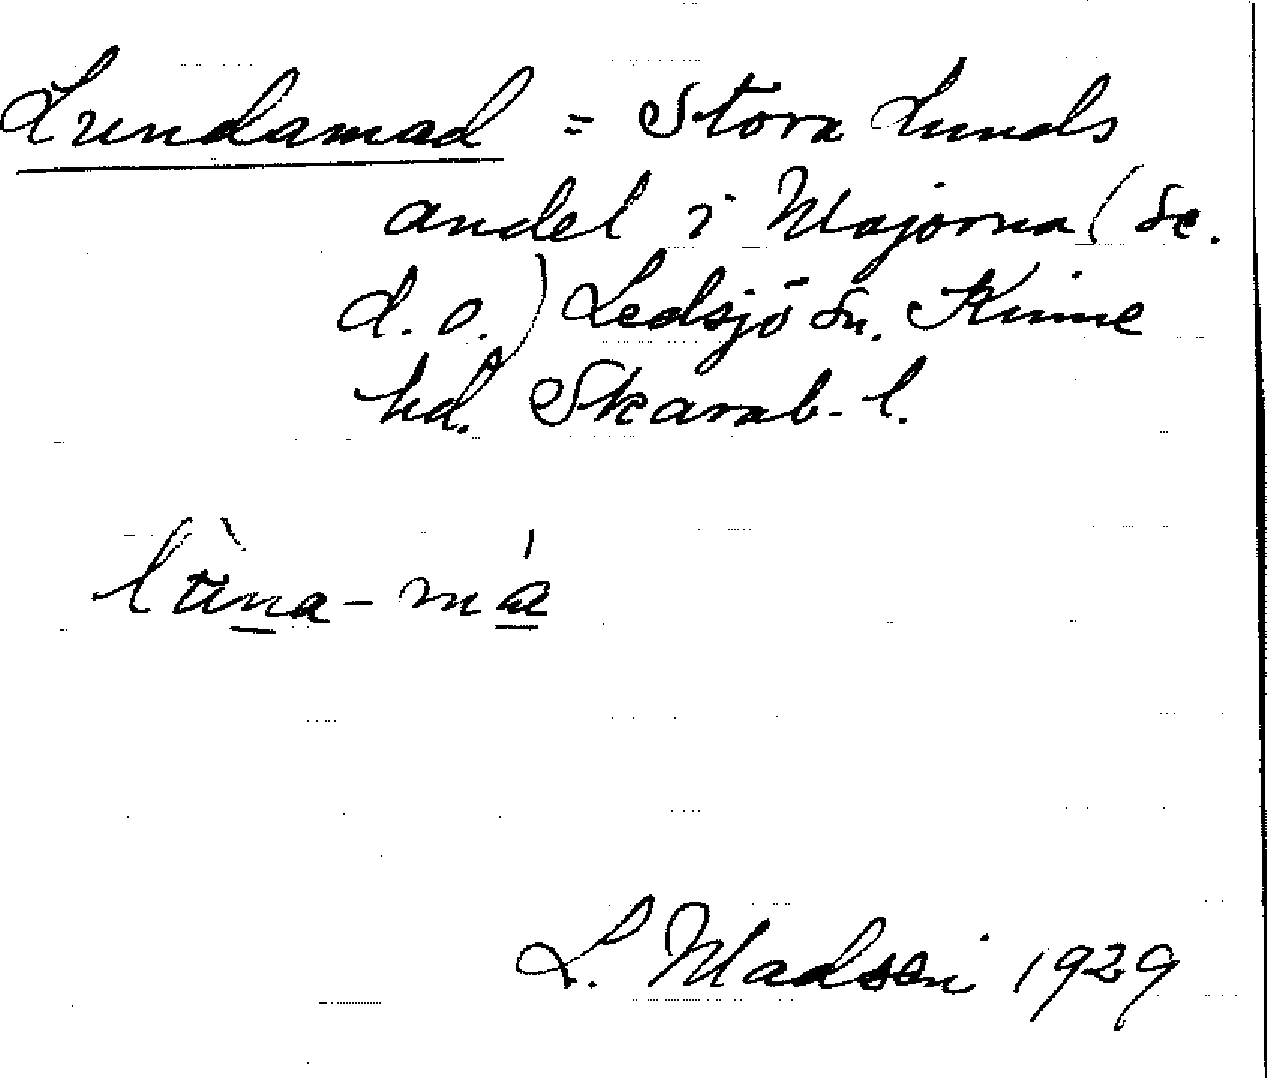 Lundamad = Stora Lunds
andel i Majorna (se.
d. o.) Ledsjö sn. Kinne
hd. Skarab. l.
lùna-má
L. Madsén 1929